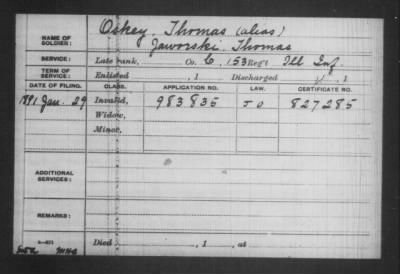 Oskey, Thomas (alias)
NAME OF SOLDIER: Jaworski, Thomas
SERVICE: Late rank, Co. C, 153 Reg't Ill Inf.
TERM OF SERVICE: Enlisted , 1 Discharged , 1
DATE OF FILING. CLASS. APPLICATION NO. LAW. CERTIFICATE NO.
1891 Jan. 29 Invalid, 983835 827285
Widow,
Minor,
ADDITIONAL SERVICES:
REMARKS:
Died , 1 , at